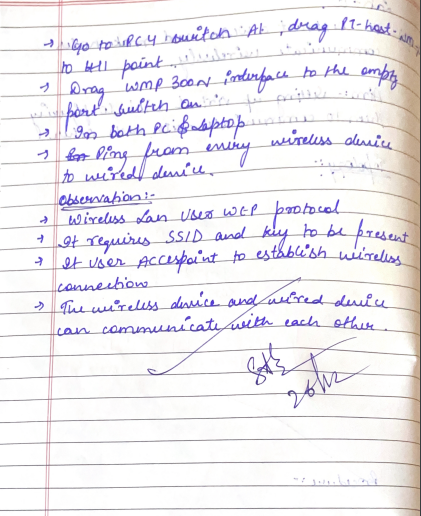 → Go to PC4 switch At, drag PT-host-NM
to point.
→ Drag WMP 300N interface to the empty
port. switch on
→ In both PC & laptop
→ Ping from every wireless device
to wired device.
Observation:-
→ Wireless Lan User WEP protocol
→ It requires SSID and key to be present
→ It User ACCespoint to establish wireless
connection
→ The wireless device and wired device
can communicate with each other.